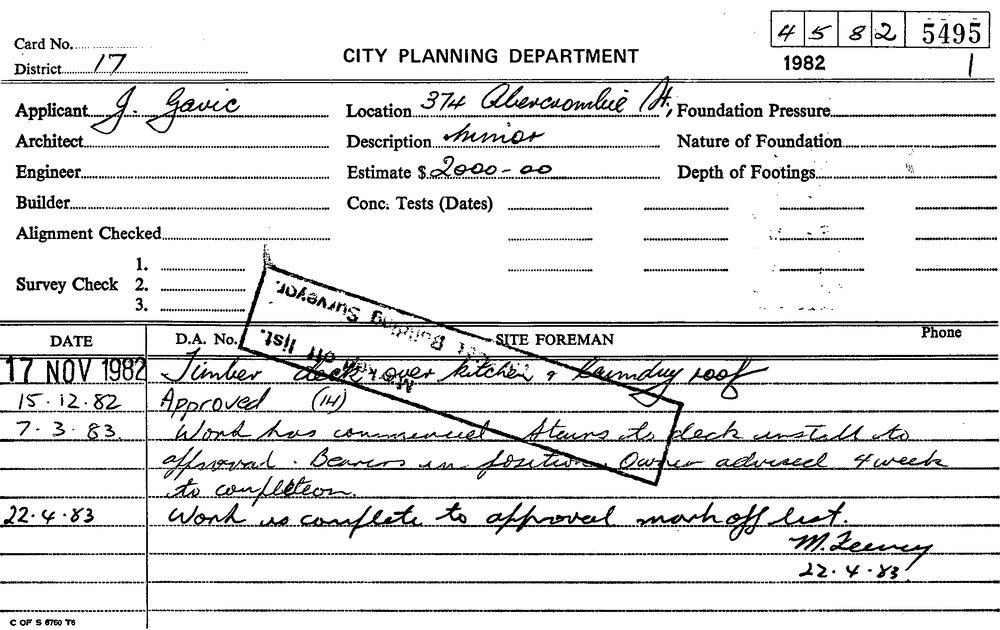 4 5 8 2 5495
Card No.
CITY PLANNING DEPARTMENT
1982 1
District 17
Applicant J. Gavic Location 374 Abercrombie St, Foundation Pressure
Architect Description Minor Nature of Foundation
Engineer Estimate $ 2000-00 Depth of Footings
Builder Conc. Tests (Dates)
Alignment Checked
1.
Survey Check 2.
3.
DATE D.A. No. SITE FOREMAN Phone
Mark off list.
Building Surveyor.
17 NOV 1982 Timber deck over kitchen & laundry roof
15.12.82 Approved (14)
7.3.83. Work has commenced Stairs to deck install to
approval. Bearers in position. Owner advised 4 week
to completion.
22.4.83 Work is complete to approval mark off list.
M. Feeney
22.4.83.
C OF S 6760 T6